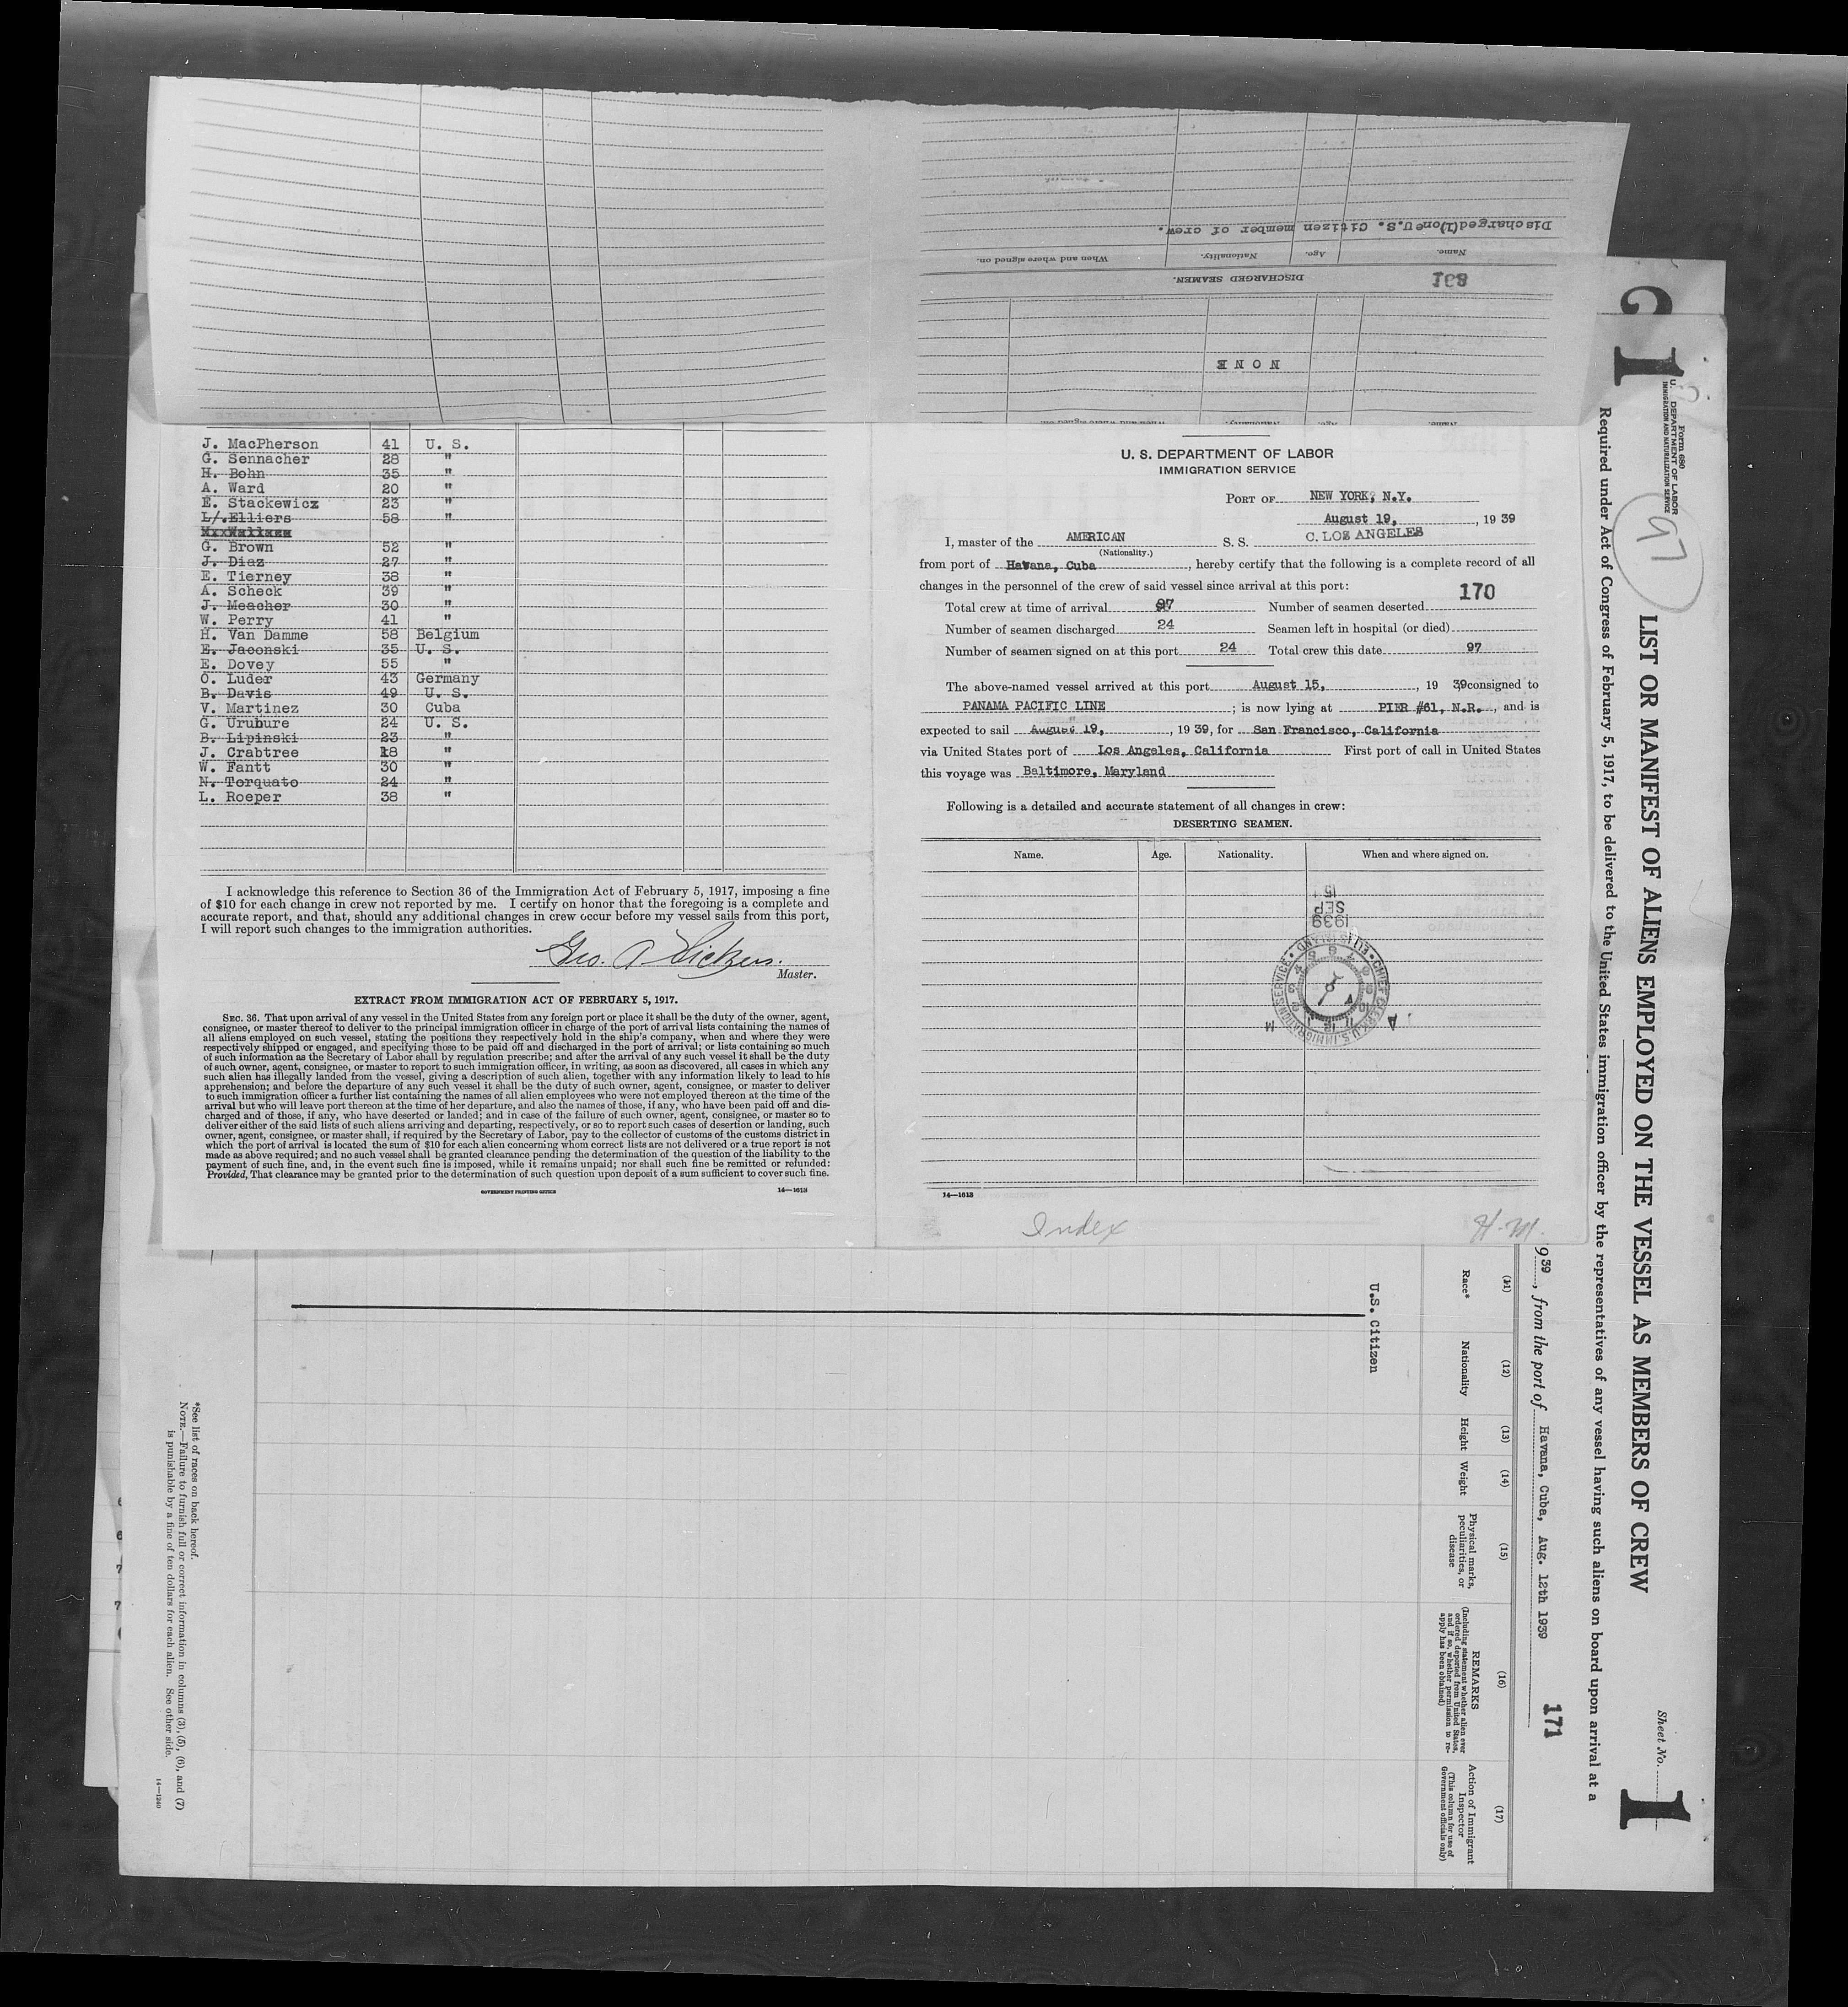 Discharged(1)one U.S. Citizen member of crew.
Name. Age. Nationality. When and where signed on.
DISCHARGED SEAMEN.
NONE
J. MacPherson 41 U. S.
G. Sennacher 28 "
H. Bohn 35 "
A. Ward 20 "
E. Stackewicz 23 "
L/.Elliers 58 "
G. Brown 52 "
J. Diaz 27 "
E. Tierney 38 "
A. Scheck 39 "
J. Meacher 30 "
W. Perry 41 "
H. Van Damme 58 Belgium
E. Jaconski 35 U. S.
E. Dovey 55 "
O. Luder 43 Germany
B. Davis 49 U. S.
V. Martinez 30 Cuba
G. Urubure 24 U. S.
B. Lipinski 23 "
J. Crabtree 18 "
W. Fantt 30 "
N. Torquato 24 "
L. Roeper 38 "
I acknowledge this reference to Section 36 of the Immigration Act of February 5, 1917, imposing a fine
of $10 for each change in crew not reported by me. I certify on honor that the foregoing is a complete and
accurate report, and that, should any additional changes in crew occur before my vessel sails from this port,
I will report such changes to the immigration authorities.
Master.
EXTRACT FROM IMMIGRATION ACT OF FEBRUARY 5, 1917.
SEC. 36. That upon arrival of any vessel in the United States from any foreign port or place it shall be the duty of the owner, agent,
consignee, or master thereof to deliver to the principal immigration officer in charge of the port of arrival lists containing the names of
all aliens employed on such vessel, stating the positions they respectively hold in the ship's company, when and where they were
respectively shipped or engaged, and specifying those to be paid off and discharged in the port of arrival; or lists containing so much
of such information as the Secretary of Labor shall by regulation prescribe; and after the arrival of any such vessel it shall be the duty
of such owner, agent, consignee, or master to report to such immigration officer, in writing, as soon as discovered, all cases in which any
such alien has illegally landed from the vessel, giving a description of such alien, together with any information likely to lead to his
apprehension; and before the departure of any such vessel it shall be the duty of such owner, agent, consignee, or master to deliver
to such immigration officer a further list containing the names of all alien employees who were not employed thereon at the time of the
arrival but who will leave port thereon at the time of her departure, and also the names of those, if any, who have been paid off and dis-
charged and of those, if any, who have deserted or landed; and in case of the failure of such owner, agent, consignee, or master so to
deliver either of the said lists of such aliens arriving and departing, respectively, or so to report such cases of desertion or landing, such
owner, agent, consignee, or master shall, if required by the Secretary of Labor, pay to the collector of customs of the customs district in
which the port of arrival is located the sum of $10 for each alien concerning whom correct lists are not delivered or a true report is not
made as above required; and no such vessel shall be granted clearance pending the determination of the question of the liability to the
payment of such fine, and, in the event such fine is imposed, while it remains unpaid; nor shall such fine be remitted or refunded:
Provided, That clearance may be granted prior to the determination of such question upon deposit of a sum sufficient to cover such fine.
GOVERNMENT PRINTING OFFICE 14—1613
U. S. DEPARTMENT OF LABOR
IMMIGRATION SERVICE
PORT OF NEW YORK, N.Y.
August 19, , 19 39
I, master of the AMERICAN S. S. C. LOS ANGELES
(Nationality.)
from port of Havana, Cuba , hereby certify that the following is a complete record of all
changes in the personnel of the crew of said vessel since arrival at this port:
170
Total crew at time of arrival 97 Number of seamen deserted
Number of seamen discharged 24 Seamen left in hospital (or died)
Number of seamen signed on at this port 24 Total crew this date 97
The above-named vessel arrived at this port August 15, , 19 39, consigned to
PANAMA PACIFIC LINE ; is now lying at PIER #61, N.R. , and is
expected to sail August 19, , 19 39, for San Francisco, California
via United States port of Los Angeles, California First port of call in United States
this voyage was Baltimore, Maryland
Following is a detailed and accurate statement of all changes in crew:
DESERTING SEAMEN.
Name. Age. Nationality. When and where signed on.
1939
SEP
15
CHIEF CLERK U.S. IMMIGRATION SERVICE • ELLIS ISLAND
14—1613
Index
H. M.
Form 680
U. S. DEPARTMENT OF LABOR
IMMIGRATION AND NATURALIZATION SERVICE
97
Sheet No. 1
LIST OR MANIFEST OF ALIENS EMPLOYED ON THE VESSEL AS MEMBERS OF CREW
Required under Act of Congress of February 5, 1917, to be delivered to the United States immigration officer by the representatives of any vessel having such aliens on board upon arrival at a
939 , from the port of Havana, Cuba, Aug. 12th 1939
171
(11) (12) (13) (14) (15) (16) (17)
Race*
Nationality
Height
Weight
Physical marks, peculiarities, or disease
REMARKS
(Including statement whether alien ever ordered deported from United States, and if so, whether permission to reapply has been obtained)
Action of Immigrant Inspector
(This column for use of Government officials only)
U.S. Citizen
*See list of races on back hereof.
NOTE.—Failure to furnish full or correct information in columns (3), (5), (6), and (7)
is punishable by a fine of ten dollars for each alien. See other side.
14—1240